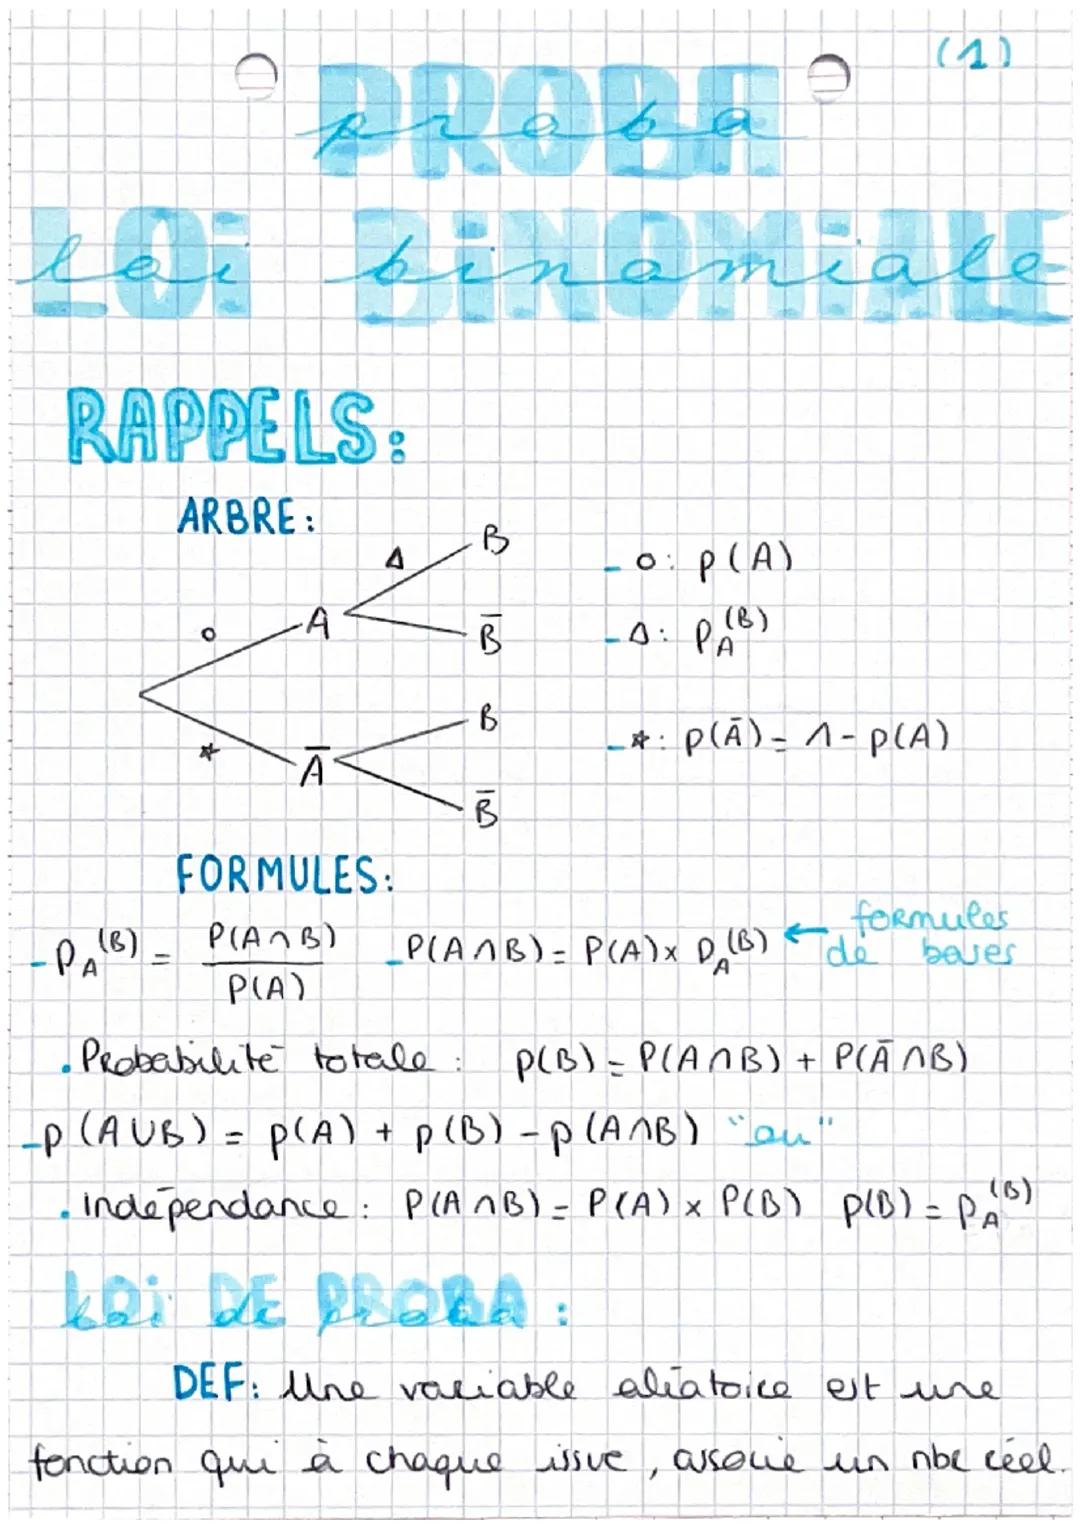 (1)
PROBA
proba
LOi BiNOMiALE
loi binomiale
RAPPELS:
ARBRE:
B
Δ
- o: p(A)
A
o
B̅
- Δ: P_A^(B)
B
*
- *: p(Ā) = 1 - p(A)
A̅
B̅
FORMULES:
- P_A^(B) = P(A∩B) / P(A) - P(A∩B) = P(A) x P_A^(B) ← formules de bases
. Probabilité totale : p(B) = P(A∩B) + P(Ā∩B)
- p(A∪B) = p(A) + p(B) - p(A∩B) "ou"
. indépendance : P(A∩B) = P(A) x P(B) p(B) = P_A^(B)
LOi DE PROBA :
loi de proba
DEF: Une variable aléatoire est une
fonction qui à chaque issue, associe un nbr réel.